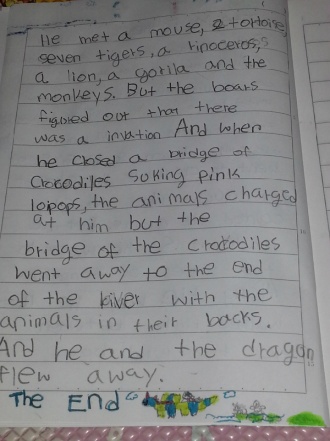 He met a mouse, 2 tortoise,
seven tigers, a rinoceros,
a lion, a gorila and the
monkeys. But the boars
figured out that there
was a invation And when
he closed a bridge of
Crocodiles Suking pink
lopops, the animals charged
at him but the
bridge of the crocodiles
went away to the end
of the River with the
animals in their backs.
And he and the dragon
flew away.
The END